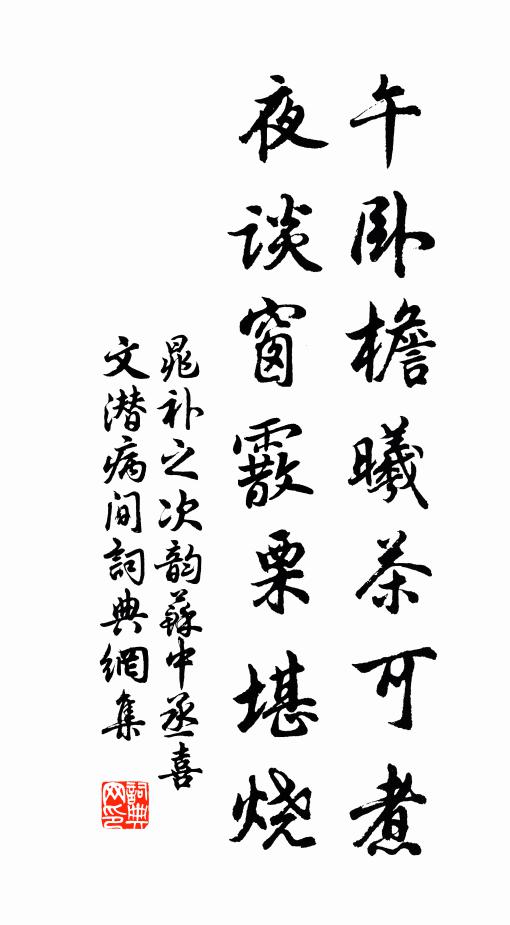 午卧檐曦茶可煮
夜谈窗霰栗堪烧
晁补之次韵蘇中丞喜
文潜病间詞典網集
詞典网印